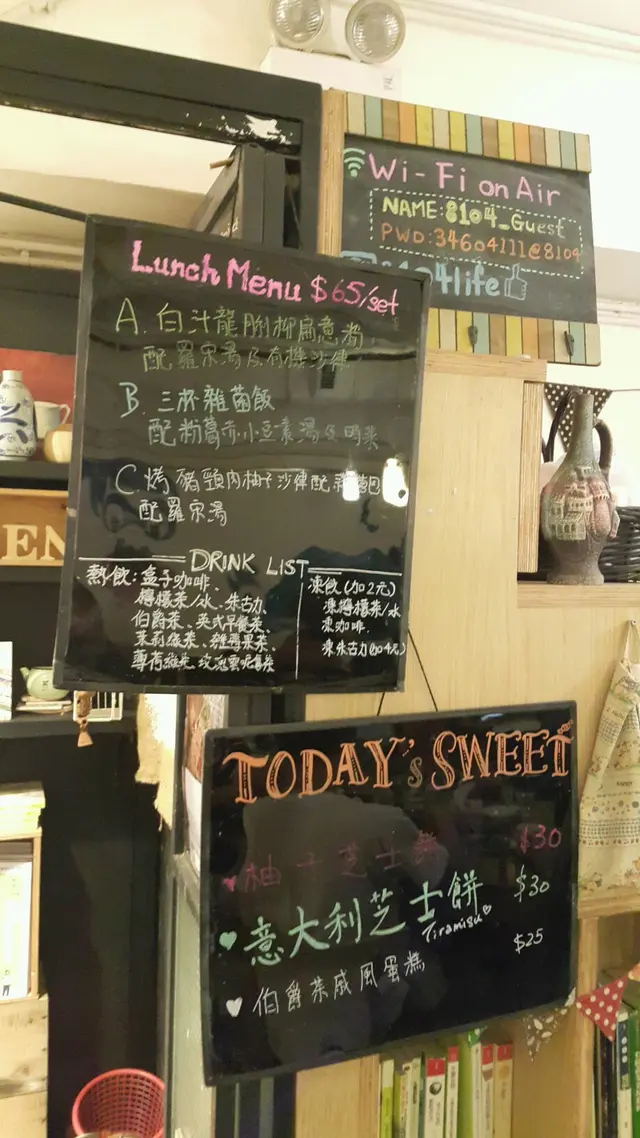 Wi-Fi on Air
NAME: 8104_Guest
PWD: 34604111@8104
8104life
Lunch Menu $65/set
A. 白汁龍脷柳扁意粉
配羅宋湯及有機沙律
B. 三杯雜菌飯
配粉葛赤小豆素湯及時菜
C. 烤豬頸肉柚子沙律配
配羅宋湯
DRINK LIST
熱飲: 盒子咖啡、
檸檬茶/水、朱古力、
伯爵茶、英式早餐茶、
茉莉綠茶、雜莓果茶、
凍飲(加2元)
凍檸檬茶/水
凍咖啡.
凍朱古力(加4元)
EN
TODAY's SWEET
柚子芝士餅 $30
意大利芝士餅 $30
Tiramisu
伯爵茶戚風蛋糕 $25